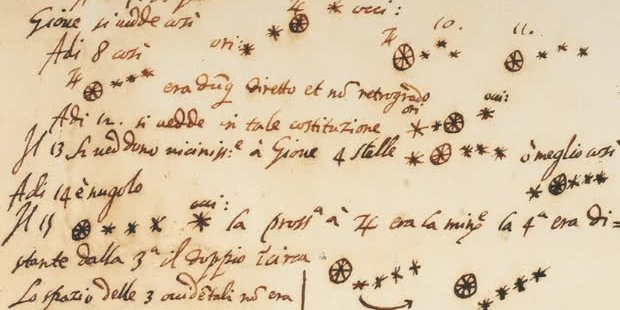 Gioue si uedde così
♃ occi:
Adi 8 così ori: ♃ 10. 11.
♃ era dūq diretto et nõ retrogrado
Adi 12. si uedde in tale costituzione ori: occi:
Il 13 si ueddono uicinissᵉ à Gioue 4 stelle ò meglio così
Adi 14 è nugolo
Il 15 occi: la prossᵃ à ♃ era la minᵉ la 4ᵃ era di=
stante dalla 3ᵃ il doppio circa
Lo spazio delle 3 occidẽtali nõ era